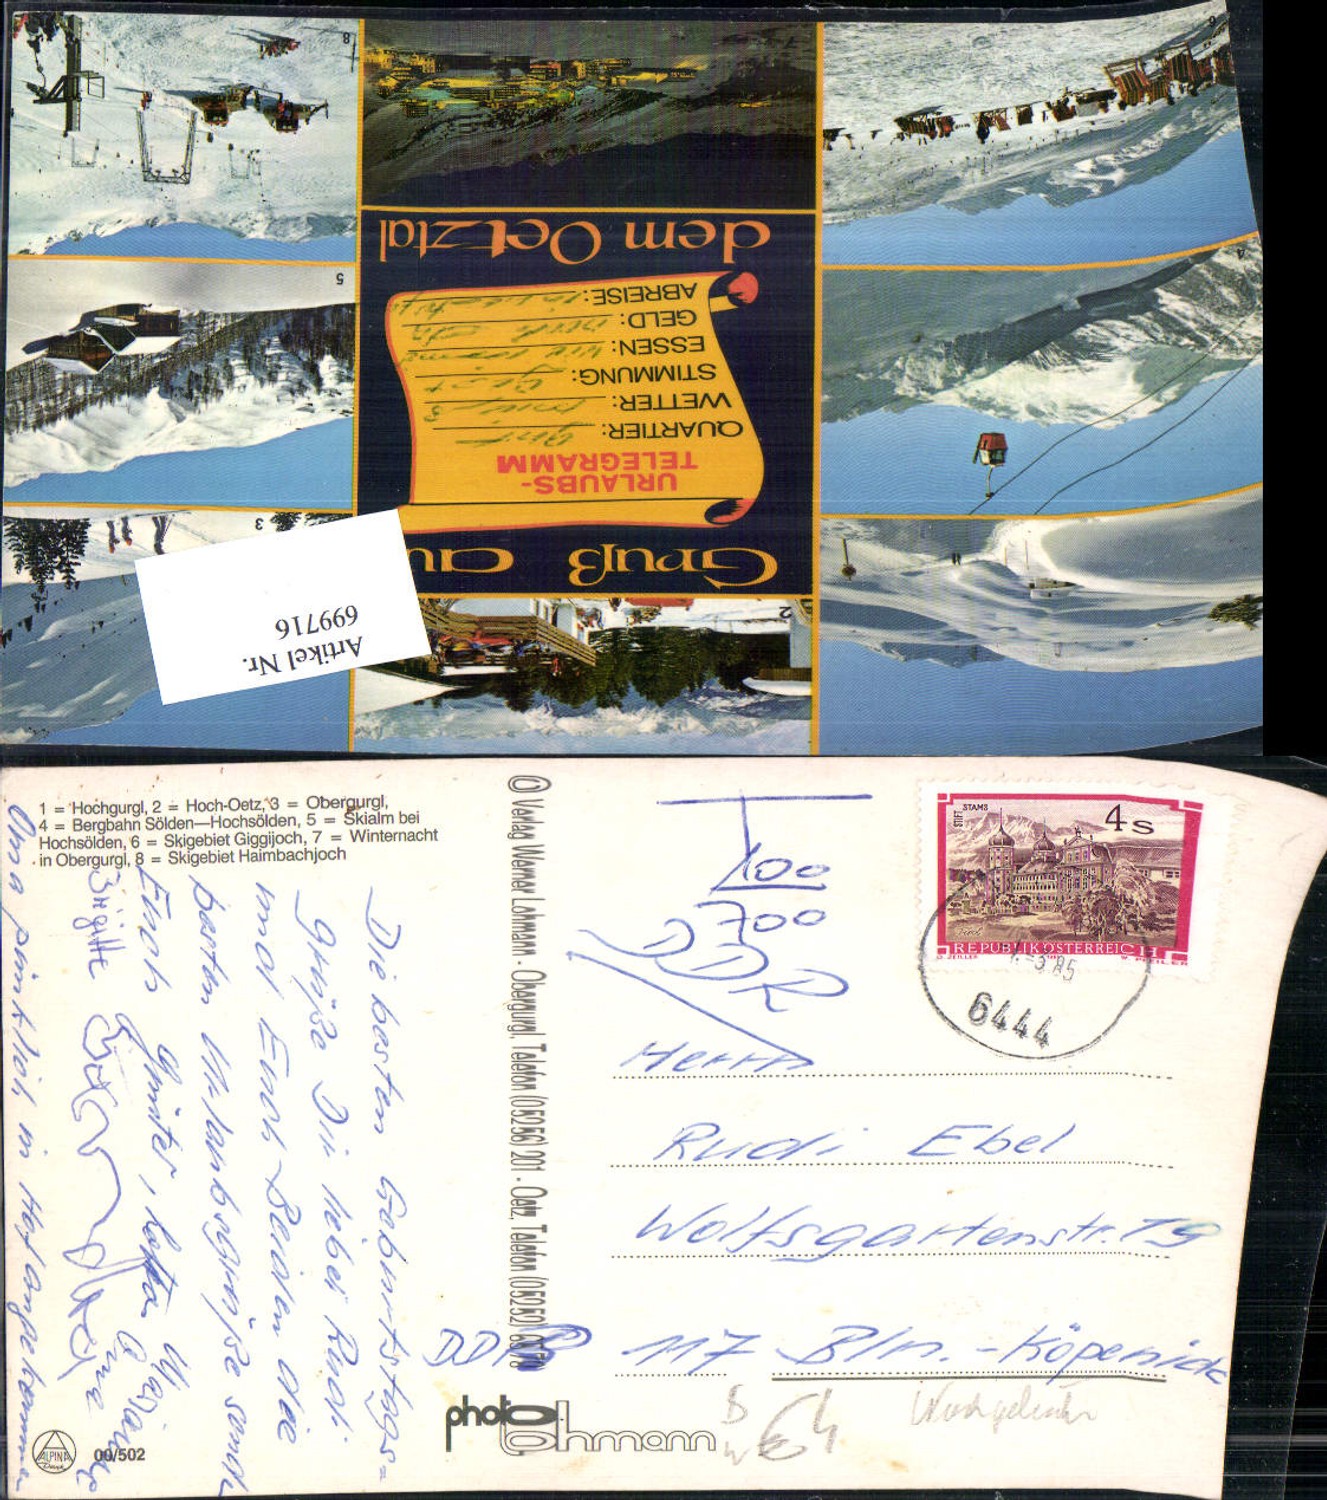 8
6
dem Oetztal
5
4
ABREISE:
GELD:
ESSEN:
STIMMUNG:
WETTER:
QUARTIER: gut
URLAUBS-
TELEGRAMM
3
Gruß au
2
Artikel Nr.
699716
1 = Hochgurgl, 2 = Hoch-Oetz, 3 = Obergurgl,
4 = Bergbahn Sölden—Hochsölden, 5 = Skialm bei
Hochsölden, 6 = Skigebiet Giggijoch, 7 = Winternacht
in Obergurgl, 8 = Skigebiet Haimbachjoch
Die besten Geburtstags=
grüße Dir lieber Rudi
und Euch Beiden die
besten Urlaubsgrüße sendet
Euch Günter,
Brigitte
Oma pünktlich in angekommen
© Verlag Werner Lohmann · Obergurgl, Telefon (05256) 201 · Oetz, Telefon (05252)
STIFT STAMS
4 S
Tirol
REPUBLIK ÖSTERREICH
O. ZEILLER
W. PFEILER
6444
T
100
700
DDR
Herrn
Rudi Ebel
Wolfsgartenstr. 19
DDR 117 Bln.-Köpenick
photo lohmann
ALPINA
Druck
00/502